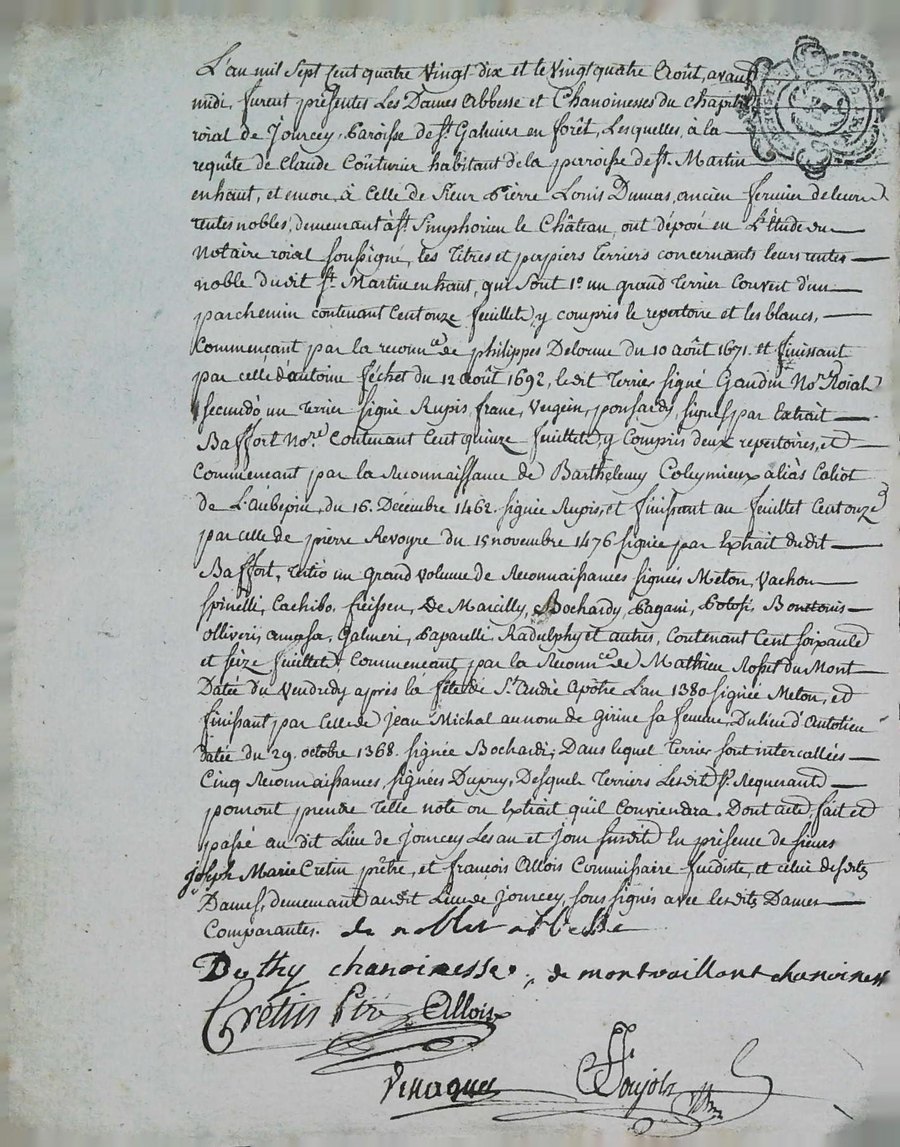 L'an mil Sept Cent quatre Vingt dix et le Vingt quatre Août, avant
midi, furent présentes Les Dames Abbesse et Chanoinesses du chapitre
roial de Jourcey, paroisse de St. Galmier en forêt, Lesquelles, à la
requête de Claude Couturier habitant de la paroisse de St. Martin
en haut, et encore, à Celle de Sieur pierre Louis Dumas, ancien fermier de leurs
rentes nobles, demeurant à St. Simphorien le Château, ont déposé en L'Etude du
Notaire roial soussigné, les Titres et papiers Terriers concernants leurs rentes
noble dudit St. Martin en haut, qui Sont 1º un grand Terrier Couvert d'un
parchemin contenant Cent onze feuillets y compris le repertoire et les blancs,
Commencant par la reconnce. de philippes Delorme du 10 août 1671. et finissant
par celle d'antoine féchet du 12 août 1692, le dit Terrier signé Gaudin Nore. Roial
secundó un Terrier signé Rupis, franc, Vergein, ponsardy, signés par Extrait
Baffort Nore. Contenant Cent quinze feuillets y Compris deux repertoires, et
Commencant par la Reconnaissance de Barthelemy Colymieux aliàs Caliot
de L'Aubepin, du 16. Décembre 1462. signée Rupis, et finissant au feuillet Cent onze
par celle de pierre Revoyre du 15 novembre 1476 signée par Extrait dudit
Baffort, tertio un grand volume de Reconnaissances signées Meton, Vachon
Spinelli, Cachibo, freissen, De Marcilly, Bochardy, Pagani, Bonetonis
olliveri, Galmeri, Paparelli, Radulphy et autres, Contenant Cent soixante
et seize feuillets Commencant par la Reconnce. de Mathieu Rosset du Mont
Datée du Vendredy après la fête de St. André Apôtre L'an 1380 signée Meton, et
finissant par Celle de Jean Michal au nom de girine sa femme, Du lieu d'
datée du 29. octobre 1368. signée Bochardi; Dans lequel Terrier sont intercallées
Cinq Reconnaissances, signées Dupuy, Desquels Terriers Lesdits Srs. Requerants
pourront prendre Telle note ou Extrait qu'il Conviendra. Dont acte, fait et
passé au dit Lieu de Jourcey Les an et jour susdits En présence de sieurs
Joseph Marie Cretin prêtre, et françois Allois Commissaire feudiste, et celui desdites
Dames, demeurant audit Lieu de Jourcey, sous signés avec lesdites Dames
Comparantes. de abbesse
Duthy chanoinesse, de montvaillant chanoinesse
Cretin Ptre Allois
Venaque Soujols